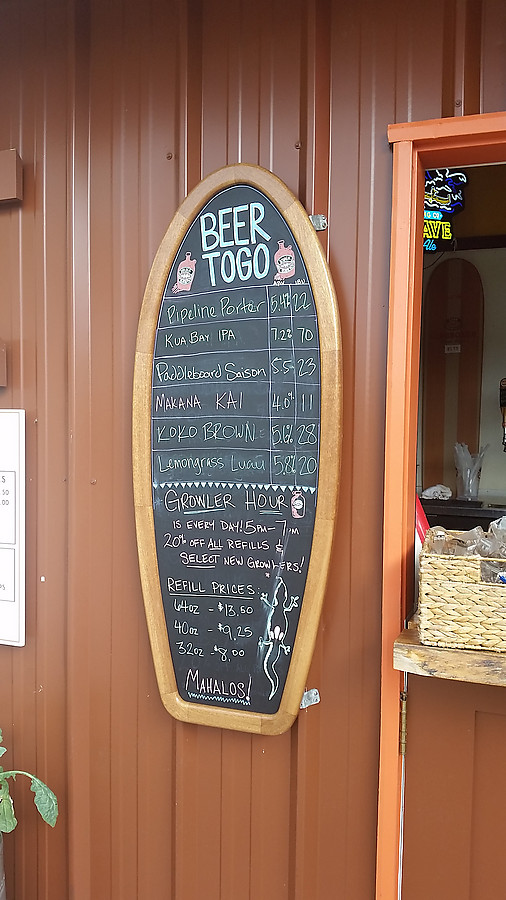 BEER
TO GO
ABV IBU
Pipeline Porter 5.4% 22
KUA BAY IPA 7.2% 70
Paddleboard Saison 5.5 23
MAKANA KAI 4.0% 11
KOKO BROWN 5.6% 28
Lemongrass Luau 5.8% 20
GROWLER HOUR
IS EVERY DAY! 5PM-7PM
20% OFF ALL REFILLS &
SELECT NEW GROWLERS!
REFILL PRICES:
64oz - $13.50
40oz - $9.25
32oz - $8.00
MAHALOS!
AVE
Ale
S
50
00